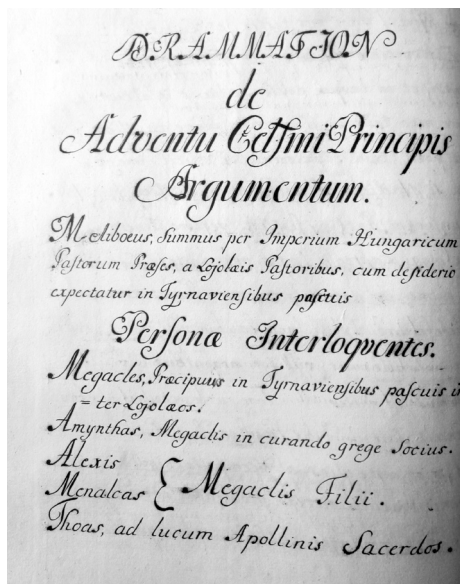 DRAMMATION
de
Adventu Celsmi Principis
Argumentum.
Meliboeus, summus per Imperium Hungaricum
Pastorum Præses, a Lojolæis Pastoribus, cum desiderio
expectatur in Tyrnaviensibus pascuis
Personæ Interloqventes.
Megacles, Præcipuus in Tyrnaviensibus pascuis in
=ter Lojolæos.
Amynthas, Megaclis in curando grege socius.
Alexis
Menalcas { Megaclis Filii.
Thoas, ad lucum Apollinis Sacerdos.